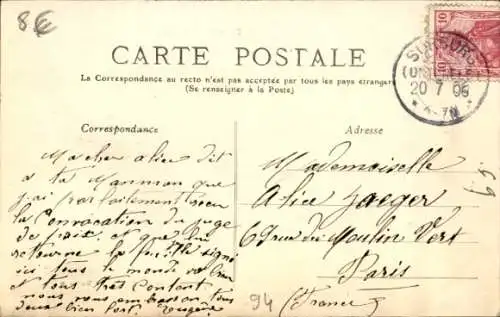 8€
CARTE POSTALE
La Correspondance au recto n'est pas acceptée par tous les pays étrangers
(Se renseigner à la Poste)
Correspondance
Adresse
10 10
SULZBURG
20 7 06
Ma cher alice dit
a ta Maman que
j'ai parfaitement recu
la Convocation du juge
de paix. et que lui
retourne la feuille signé
ici tous le monde va bien
et tous tres Contant
nous vous embrasson tous
deux bien fort. Eugene
Mademoiselle
Alice Jaeger
69 rue du Moulin Vert
Paris
94 (France)